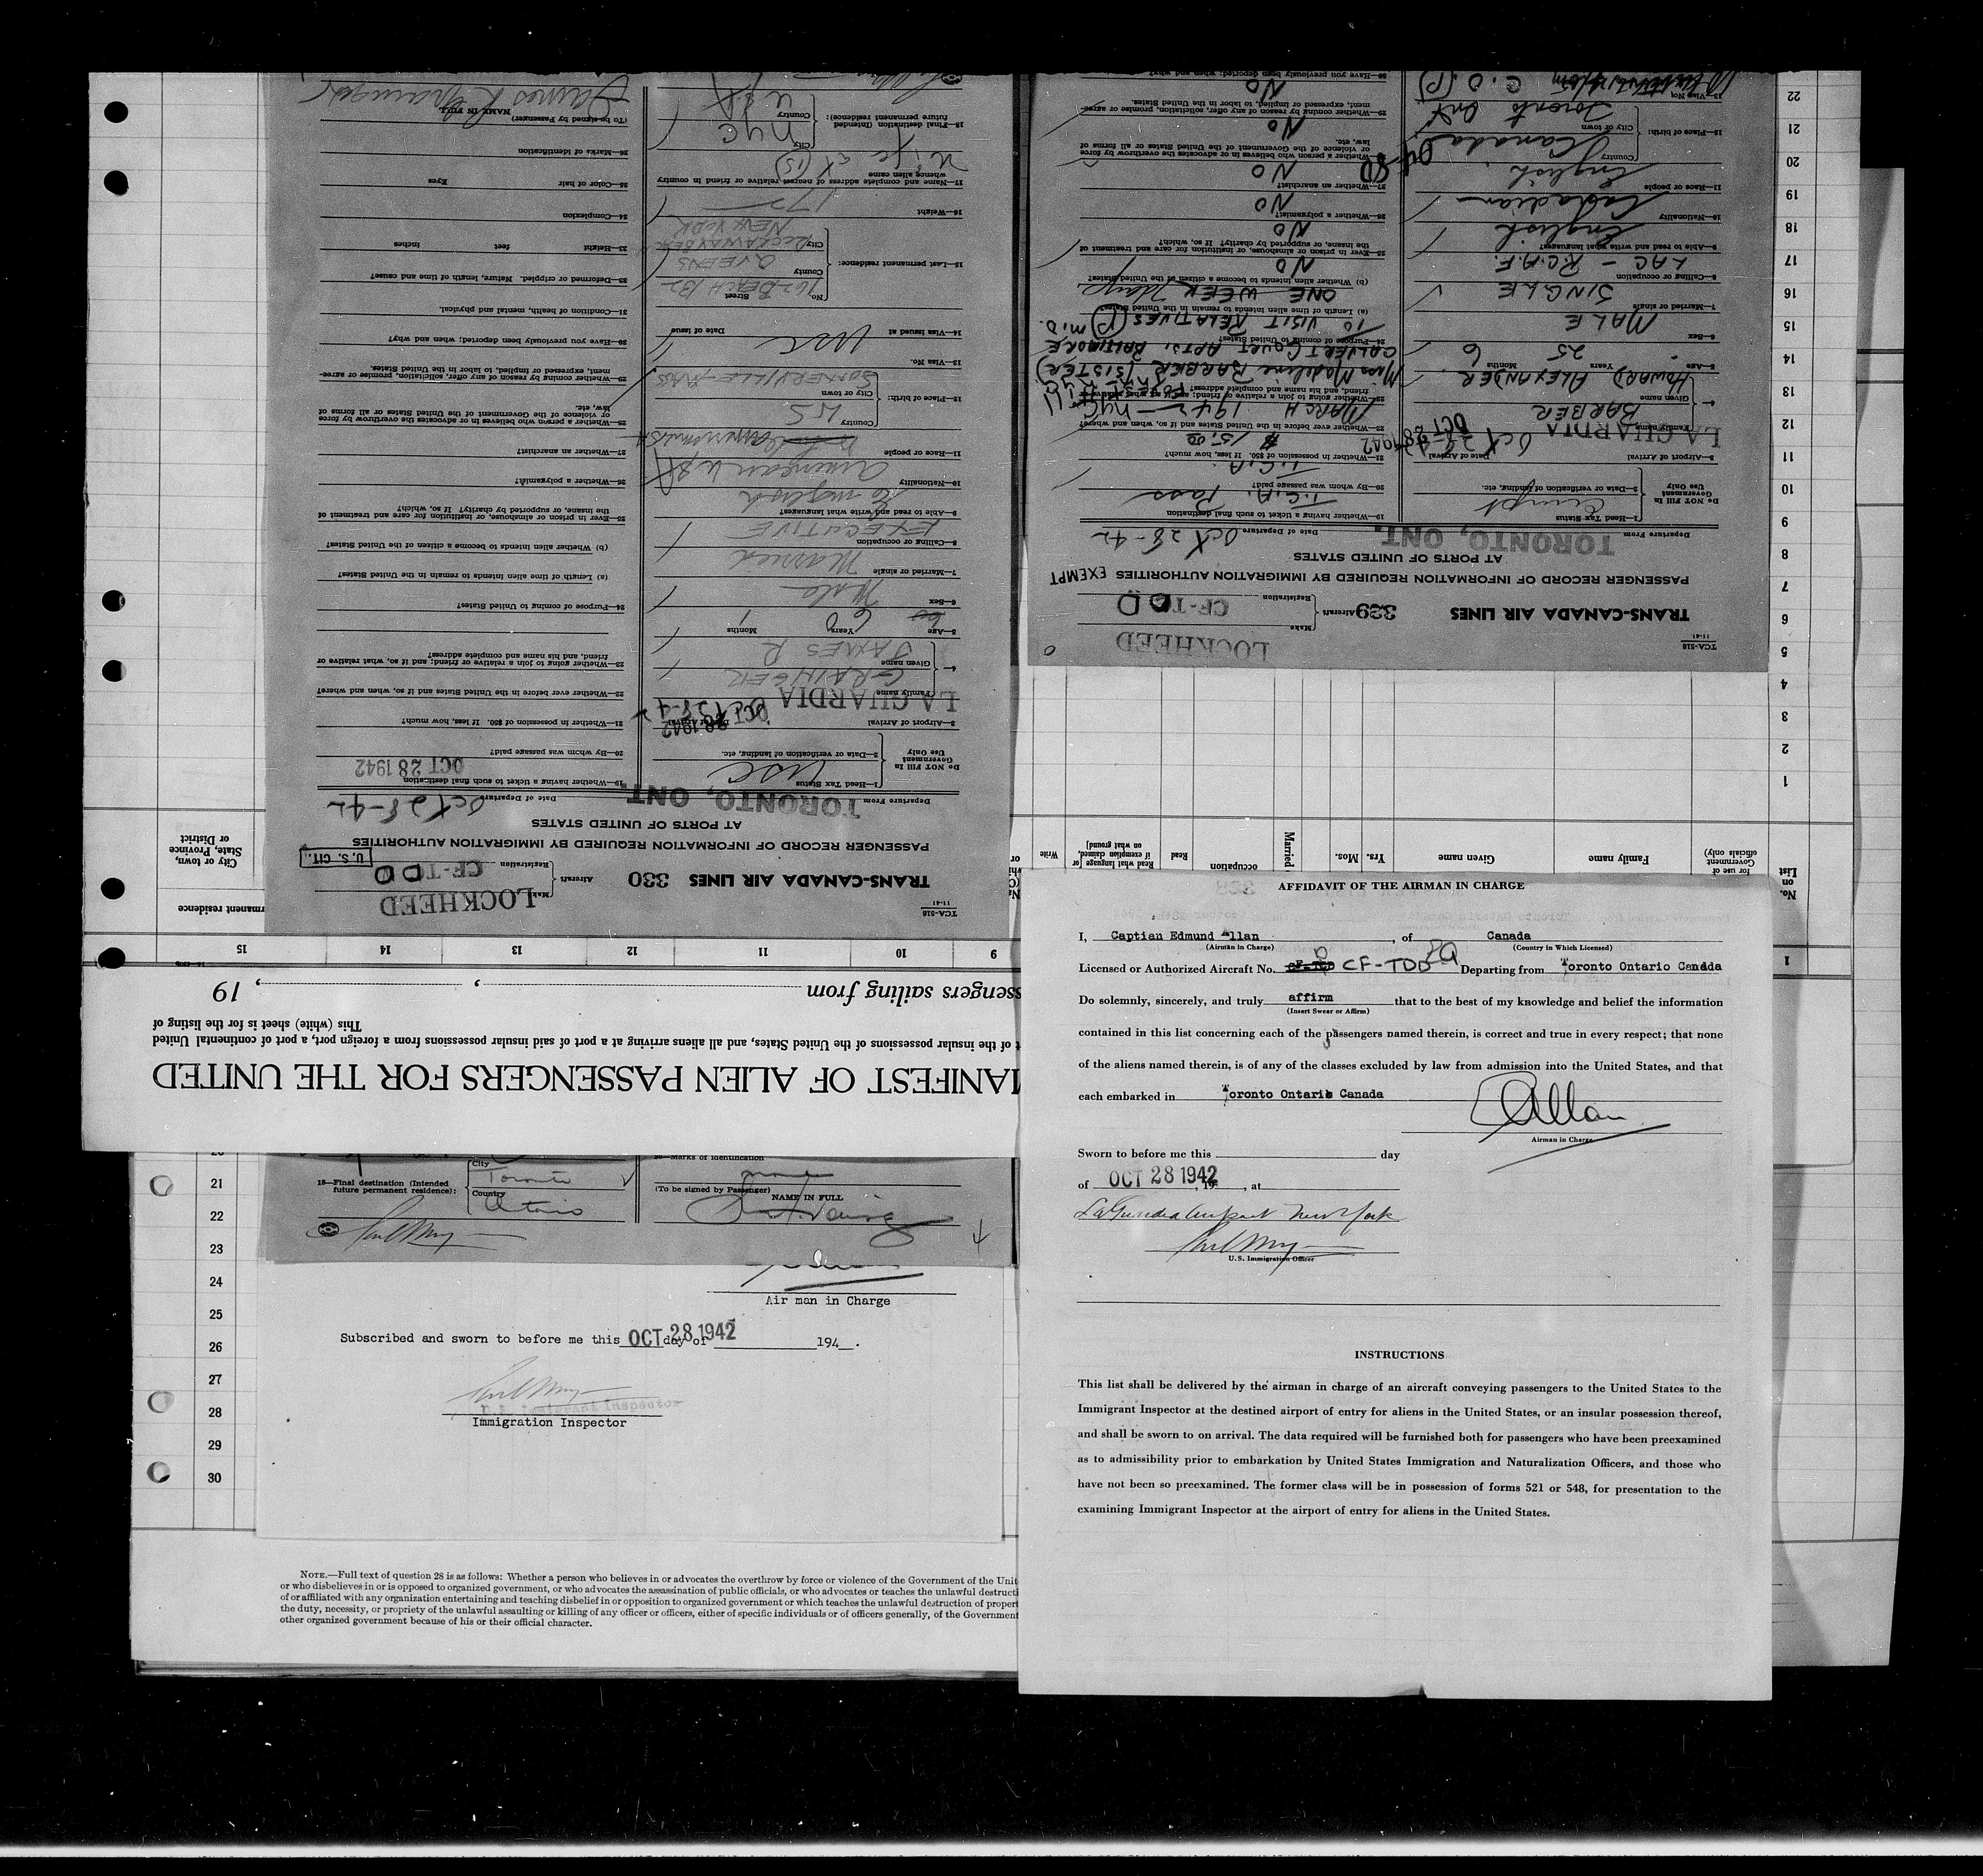 AFFIDAVIT OF THE AIRMAN IN CHARGE
I, Captian Edmund Allan, of Canada
(Airman in Charge) (Country in Which Licensed)
Licensed or Authorized Aircraft No. CF-TDD Departing from Toronto Ontario Canada
Do solemnly, sincerely, and truly affirm that to the best of my knowledge and belief the information
(Insert Swear or Affirm)
contained in this list concerning each of the passengers named therein, is correct and true in every respect; that none
of the aliens named therein, is of any of the classes excluded by law from admission into the United States, and that
each embarked in Toronto Ontario Canada
EAllan
Airman in Charge
Sworn to before me this day
of OCT 28 1942, 19 , at
LaGuardia Airport New York
U.S. Immigration Officer
INSTRUCTIONS
This list shall be delivered by the airman in charge of an aircraft conveying passengers to the United States to the
Immigrant Inspector at the destined airport of entry for aliens in the United States, or an insular possession thereof,
and shall be sworn to on arrival. The data required will be furnished both for passengers who have been preexamined
as to admissibility prior to embarkation by United States Immigration and Naturalization Officers, and those who
have not been so preexamined. The former class will be in possession of forms 521 or 548, for presentation to the
examining Immigrant Inspector at the airport of entry for aliens in the United States.
21
22
23
24
25
26
27
28
29
30
City Toronto
18—Final destination (Intended
future permanent residence):
Country Ontario
36—Marks of identification none
(To be signed by Passenger)
NAME IN FULL
Air man in Charge
Subscribed and sworn to before me this OCT 28 1942 day of 194 .
U.S. Immigrant Inspector
Immigration Inspector
NOTE.—Full text of question 28 is as follows: Whether a person who believes in or advocates the overthrow by force or violence of the Government of the Unit
or who disbelieves in or is opposed to organized government, or who advocates the assassination of public officials, or who advocates or teaches the unlawful destructi
of or affiliated with any organization entertaining and teaching disbelief in or opposition to organized government or which teaches the unlawful destruction of propert
the duty, necessity, or propriety of the unlawful assaulting or killing of any officer or officers, either of specific individuals or of officers generally, of the Government
other organized government because of his or their official character.
MANIFEST OF ALIEN PASSENGERS FOR THE UNITED
t of the insular possessions of the United States, and all aliens arriving at a port of said insular possessions from a foreign port, a port of continental United
This (white) sheet is for the listing of
ssengers sailing from , , 19
9 10 11 12 13 14 15
rmanent residence
City or town,
State, Province
or District
TCA-518
11-41
TRANS-CANADA AIR LINES 330 Aircraft
Make LOCKHEED
Registration CF-TDD
U. S. CIT.
PASSENGER RECORD OF INFORMATION REQUIRED BY IMMIGRATION AUTHORITIES
AT PORTS OF UNITED STATES
Departure From TORONTO, ONT. Date of Departure Oct 28-42
Do NOT Fill In
Government
Use Only
1—Head Tax Status USC
2—Data or verification of landing, etc.
3—Airport of Arrival LA GUARDIA Date of Arrival OCT 28 1942
4— Family name GRAINGER
Given name JAMES R
5—Age 60 Years Months 1
6—Sex Male
7—Married or single Married
8—Calling or occupation EXECUTIVE
9—Able to read and write what languages?
10—Nationality American USA
11—Race or people
12—Place of birth: Country U S
City or town SOMERVILLE-MASS
13—Visa No. USC
14—Visa issued at Date of issue
15—Last permanent residence:
No. 162 BEACH 132 Street
County QUEENS
City ROCKAWAY BEACH
NEW YORK
16—Weight 172
17—Name and complete address of nearest relative or friend in country
whence alien came
Wife at (15)
18—Final destination (Intended
future permanent residence):
City NYC
Country USA
19—Whether having a ticket to such final destination
OCT 28 1942
20—By whom was passage paid?
21—Whether in possession of $50. If less, how much?
22—Whether ever before in the United States and if so, when and where?
23—Whether going to join a relative or friend; and if so, what relative or
friend, and his name and complete address?
24—Purpose of coming to United States?
(a) Length of time alien intends to remain in the United States?
(b) Whether alien intends to become a citizen of the United States?
25—Ever in prison or almshouse, or institution for care and treatment of
the insane, or supported by charity? If so, which?
26—Whether a polygamist?
27—Whether an anarchist?
28—Whether a person who believes in or advocates the overthrow by force
or violence of the Government of the United States or all forms of
law, etc.
29—Whether coming by reason of any offer, solicitation, promise or agree-
ment, expressed or implied, to labor in the United States.
30—Have you previously been deported; when and why?
31—Condition of health, mental and physical.
32—Deformed or crippled. Nature, length of time and cause?
33—Height feet inches
34—Complexion
35—Color of hair Eyes
36—Marks of identification
(To be signed by Passenger)
NAME IN FULL
James R Grainger
No.
on
List
for use of
Government
officials only)
Family name
Given name
Yrs. Mos.
Married
occupation
Read
Read what language [or
if exemption claimed,
on what ground]
Write
1
1
2
3
4
5
6
7
8
9
10
11
12
13
14
15
16
17
18
19
20
21
22
TCA-518
11-41
TRANS-CANADA AIR LINES 329 Aircraft
Make LOCKHEED
Registration CF-TDD
PASSENGER RECORD OF INFORMATION REQUIRED BY IMMIGRATION AUTHORITIES EXEMPT
AT PORTS OF UNITED STATES
Departure From TORONTO, ONT. Date of Departure Oct 28-42
Do NOT Fill In
Government
Use Only
1—Head Tax Status Exempt
2—Data or verification of landing, etc.
3—Airport of Arrival LA GUARDIA Date of Arrival OCT 28 1942
4— Family name BARBER
Given name HOWARD ALEXANDER
5—Age 25 Years 6 Months
6—Sex MALE
7—Married or single SINGLE
8—Calling or occupation LAC - R.C.A.F.
9—Able to read and write what languages? English
10—Nationality Canadian
11—Race or people English
12—Place of birth: Country Canada
City or town Toronto Ont
13—Visa No.
19—Whether having a ticket to such final destination
T.C.A. Pass
20—By whom was passage paid? T.C.A.
21—Whether in possession of $50. If less, how much? $15.00
22—Whether ever before in the United States and if so, when and where?
MARCH 1942 - NYC
23—Whether going to join a relative or friend; and if so, what relative or
friend, and his name and complete address?
Miss Madeline BARBER (SISTER)
CALVERT COURT APTS. BALTIMORE
24—Purpose of coming to United States?
TO VISIT RELATIVES (P) M.D.
(a) Length of time alien intends to remain in the United States?
ONE WEEK 7 days
(b) Whether alien intends to become a citizen of the United States?
NO
25—Ever in prison or almshouse, or institution for care and treatment of
the insane, or supported by charity? If so, which?
NO
26—Whether a polygamist? NO
27—Whether an anarchist? NO
28—Whether a person who believes in or advocates the overthrow by force
or violence of the Government of the United States or all forms of
law, etc.
No
29—Whether coming by reason of any offer, solicitation, promise or agree-
ment, expressed or implied, to labor in the United States.
NO
30—Have you previously been deported; when and why?